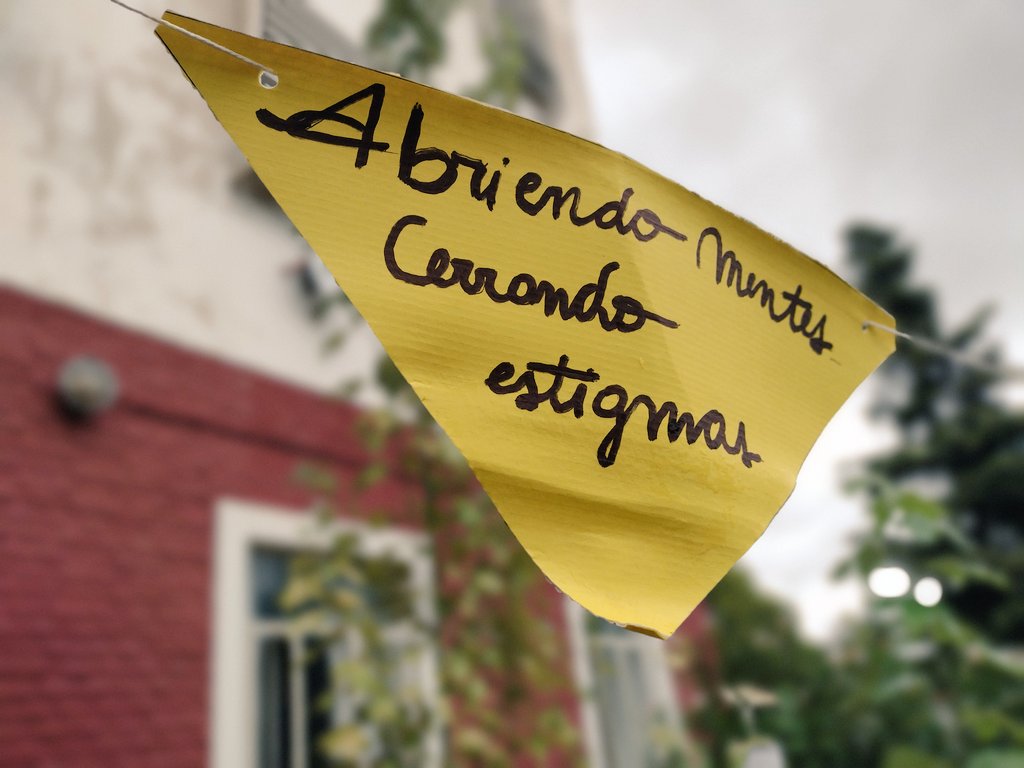 Abriendo mentes
Cerrando
estigmas